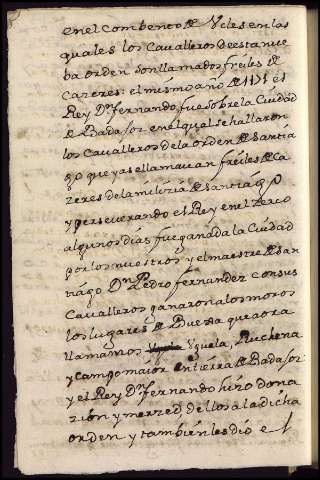 en el combento de Ucles en las
quales los Cavalleros de esta nue
ba orden son llamados freiles de
Cazeres: el mismo año de 1171 el
Rey Dn fernando fue sobre la Ciudad
de Badajoz en el qual se hallaron
los Cavalleros de la orden de Santia
go que ya se llamavan freiles de Ca
zeres de la milizia de Santiágo
y perseverando el Rey en el zerco
algunos días fue ganada la Ciudad
por los nuestros y el maestre de San
tiágo Dn Pedro fernandez con sus
Cavalleros ganaron a los moros
los lugares de que aora
llamamos Uguela, Ruchena
y campo maior en tierra de Badajoz:
y el Rey Dn fernando hizo dona
zión y merzed dellos a la dicha
orden y también les dió el